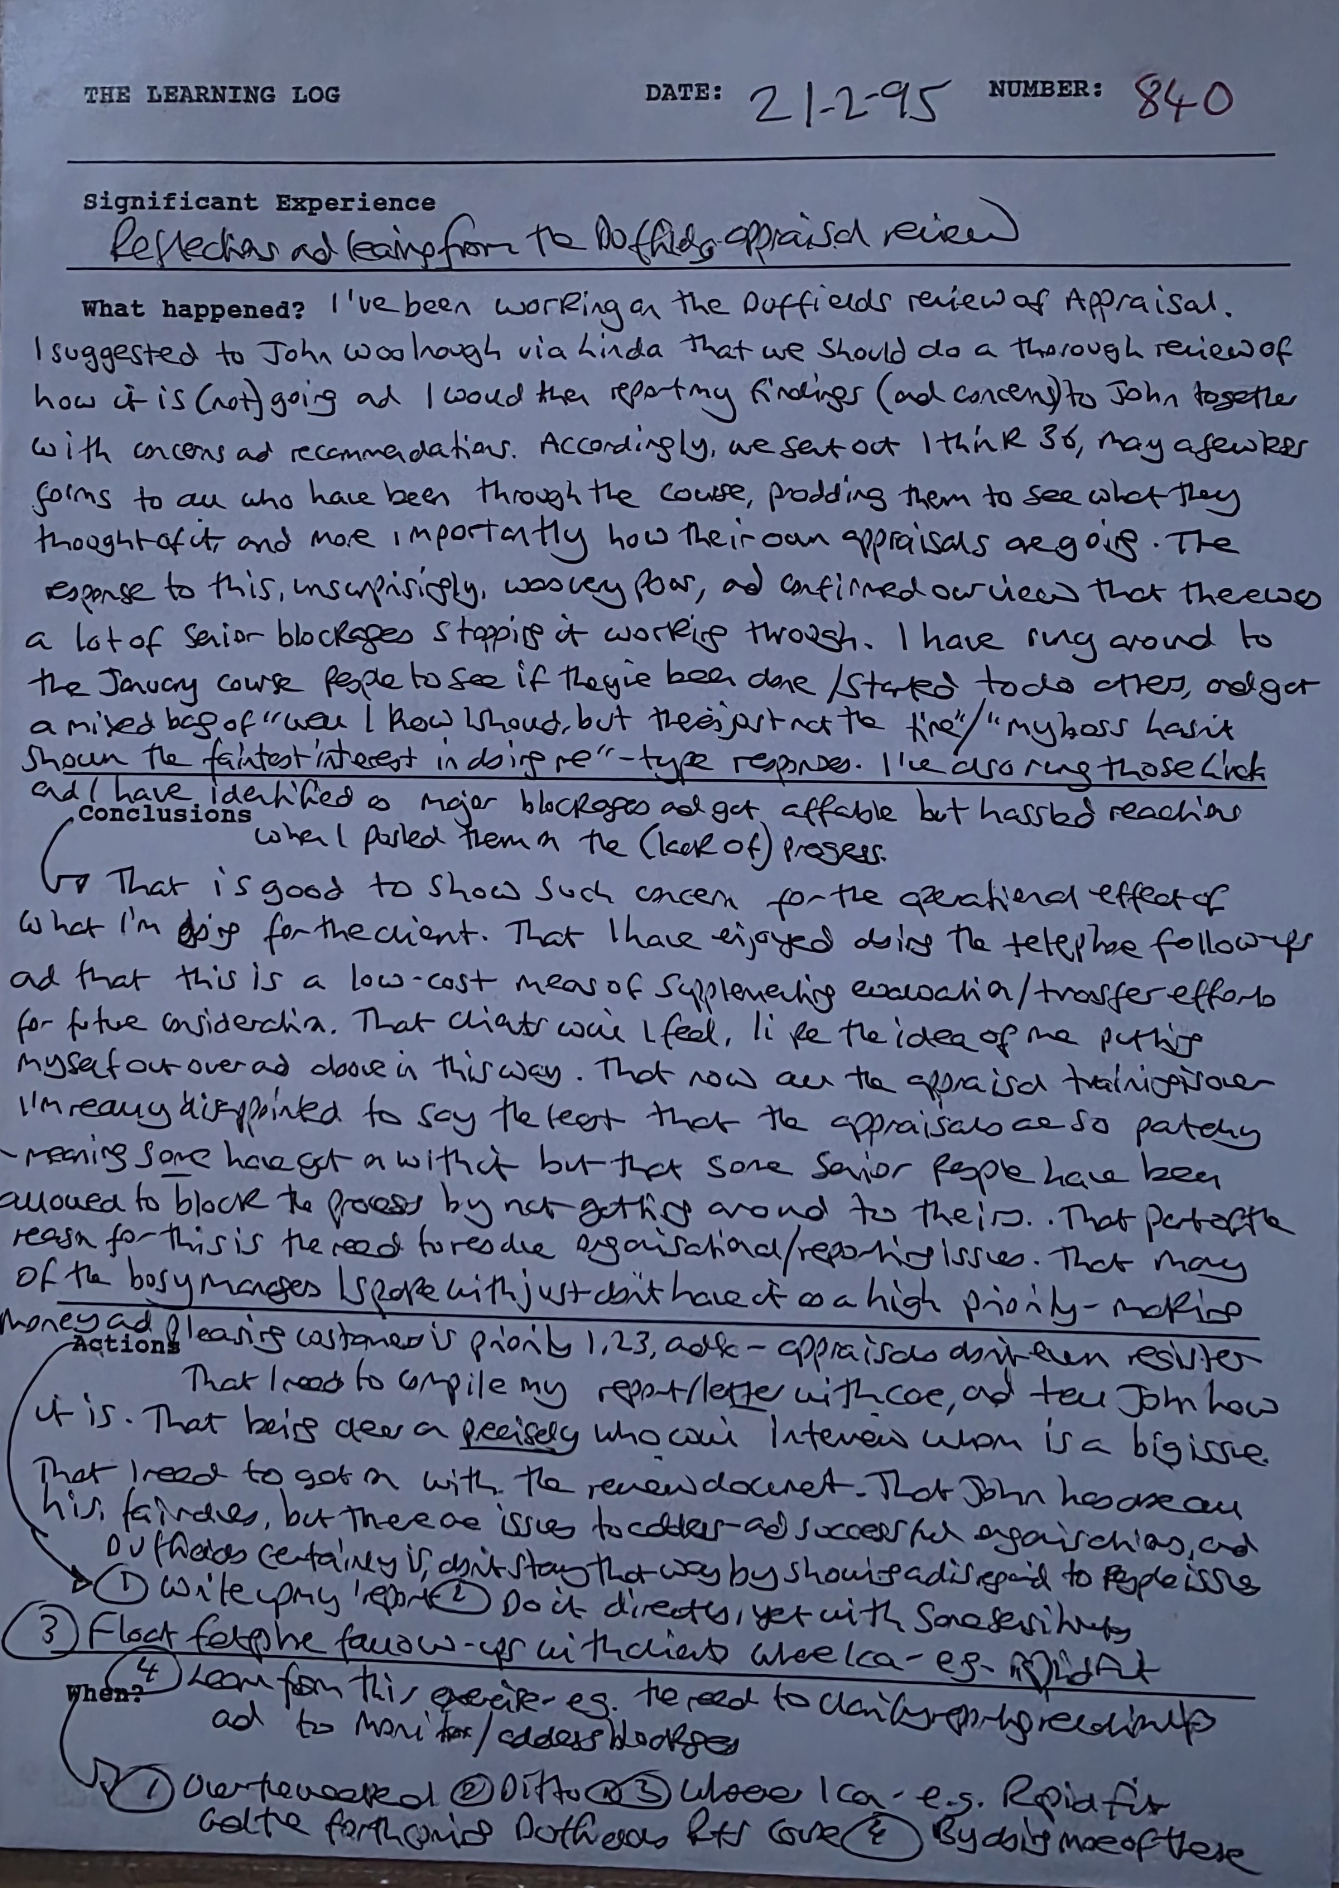 THE LEARNING LOG DATE: 21-2-95 NUMBER: 840
Significant Experience
Reflections and learning from the Duffields appraisal review
What happened? I've been working on the Duffields review of Appraisal.
I suggested to John Woolnough via Linda that we should do a thorough review of
how it is (not) going and I would then report my findings (and concerns) to John together
with concerns and recommendations. Accordingly, we sent out I think 36, may a few less
forms to all who have been through the course, prodding them to see what they
thought of it, and more importantly how their own appraisals are going. The
response to this, unsurprisingly, was very poor, and confirmed our view that there was
a lot of senior blockages stopping it working through. I have rung around to
the January course people to see if they've been done / started to do others, and got
a mixed bag of "well I know I should, but there's just not the time" / "my boss hasn't
shown the faintest interest in doing me" - type responses. I've also rung those Linda
and I have identified as major blockages and got affable but hassled reactions
Conclusions when I pushed them on the (lack of) progress.
That is good to show such concern for the operational effect of
what I'm doing for the client. That I have enjoyed doing the telephone follow-ups
and that this is a low-cost means of supplementing evaluation/transfer efforts
for future consideration. That clients will I feel, like the idea of me putting
myself out over and above in this way. That now all the appraisal training is over
I'm really disappointed to say the least that the appraisals are so patchy
- meaning some have got on with it but that some senior people have been
allowed to block the process by not getting around to theirs.. That part of the
reason for this is the need to resolve organisational/reporting issues. That many
of the busy managers I spoke with just don't have it as a high priority - making
money and pleasing customers is priority 1, 2 3, and 4 - appraisals don't even register
Actions
That I need to compile my report/letter with care, and tell John how
it is. That being clear on precisely who will interview whom is a big issue.
That I need to get on with the review document. That John has done all
his, fair dues, but there are issues to address - and successful organisations, and
Duffields certainly is, don't stay that way by showing a disregard to people issues
① Write up my report ② Do it directly, yet with some sensitivity
③ Float telephone follow-ups with clients where I can - e.g. Rapid Fit
④ Learn from this exercise - eg. the need to clarify reporting relationships
When? and to monitor/address blockages
① Over the weekend ② Ditto ③ Where I can - e.g. Rapid fit
and the forthcoming Duffields course ④ By doing more of these